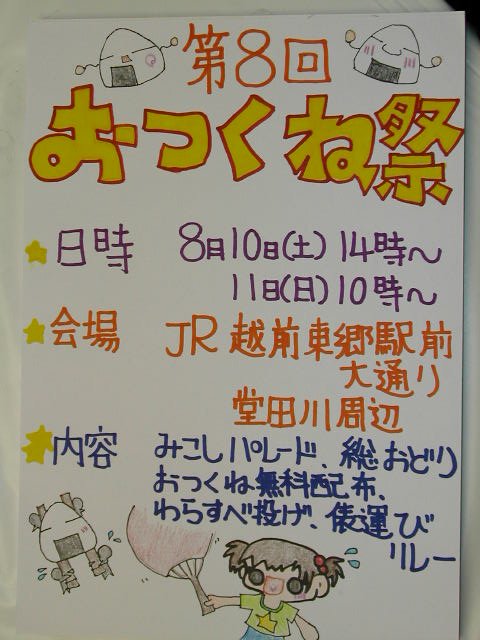 第8回
おつくね祭
日時 8月10日(土)14時～
11日(日)10時～
会場 JR越前東郷駅前
大通り
堂田川周辺
内容 みこしパレード、総おどり
おつくね無料配布、
わらすべ投げ、俵運び
リレー